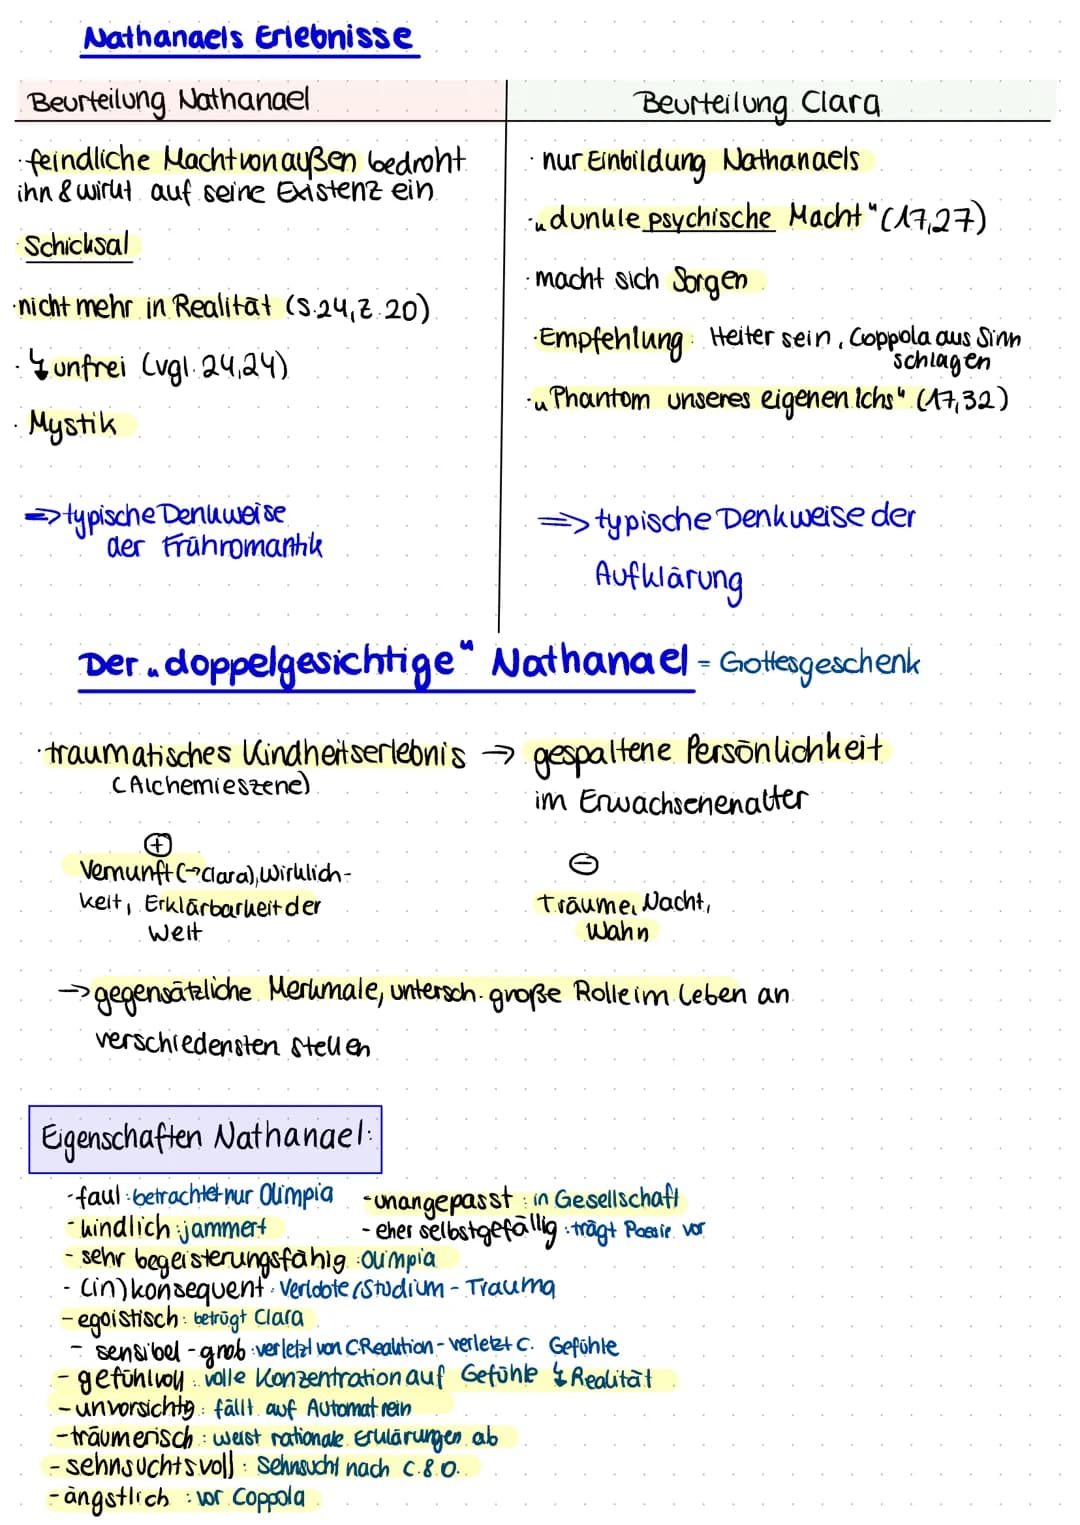 Nathanaels Erlebnisse
Beurteilung Nathanael
· feindliche Macht von außen bedroht
ihn & wirkt auf seine Existenz ein
· Schicksal
· nicht mehr in Realität (S.24, Z. 20)
· ↯ unfrei (vgl. 24,24)
· Mystik
=> typische Denkweise
der Frühromantik
Beurteilung Clara
· nur Einbildung Nathanaels
· „dunkle psychische Macht" (17,27)
· macht sich Sorgen
· Empfehlung: Heiter sein, Coppola aus Sinn
schlagen
· „Phantom unseres eigenen Ichs" (17,32)
=> typische Denkweise der
Aufklärung
Der „doppelgesichtige" Nathanael = Gottesgeschenk
· traumatisches Kindheitserlebnis → gespaltene Persönlichkeit
(Alchemieszene) im Erwachsenenalter
⊕
Vernunft (→Clara), Wirklich-
keit, Erklärbarkeit der
Welt
⊖
Träume, Nacht,
Wahn
→ gegensätzliche Merkmale, untersch. große Rolle im Leben an
verschiedensten Stellen
Eigenschaften Nathanael:
- faul: betrachtet nur Olimpia - unangepasst: in Gesellschaft
- kindlich: jammert - eher selbstgefällig: trägt Poesie vor
- sehr begeisterungsfähig: Olimpia
- (in)konsequent: Verlobte/Studium - Trauma
- egoistisch: betrügt Clara
- sensibel - grob: verletzt von C. Reaktion - verletzt C. Gefühle
- gefühlvoll: volle Konzentration auf Gefühle ↯ Realität
- unvorsichtg: fällt auf Automat rein
- träumerisch: weist rationale Erklärungen ab
- sehnsuchtsvoll: Sehnsucht nach C. & O.
- ängstlich: vor Coppola